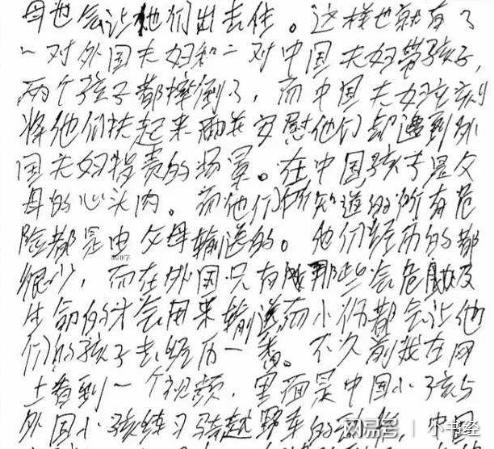 母也会让他们出去住。这样也就有了
一对外国夫妇和一对中国夫妇带孩子,
两个孩子都摔倒了,而中国夫妇立刻
将他们扶起来而安慰他们却遭到外
国夫妇指责的场景。在中国孩子是父
母的心头肉。而他们所知道的所有危
险都是由父母输送的。他们经历的都
很少,而在外国只有那些会危及
生命的才会用来输送而小伤都会让他
们的孩子去经历一番。不久前我在网
上看到一个视频,里面是中国小孩与
外国小孩练习骑越野车的 中国
网易号 | 小书经